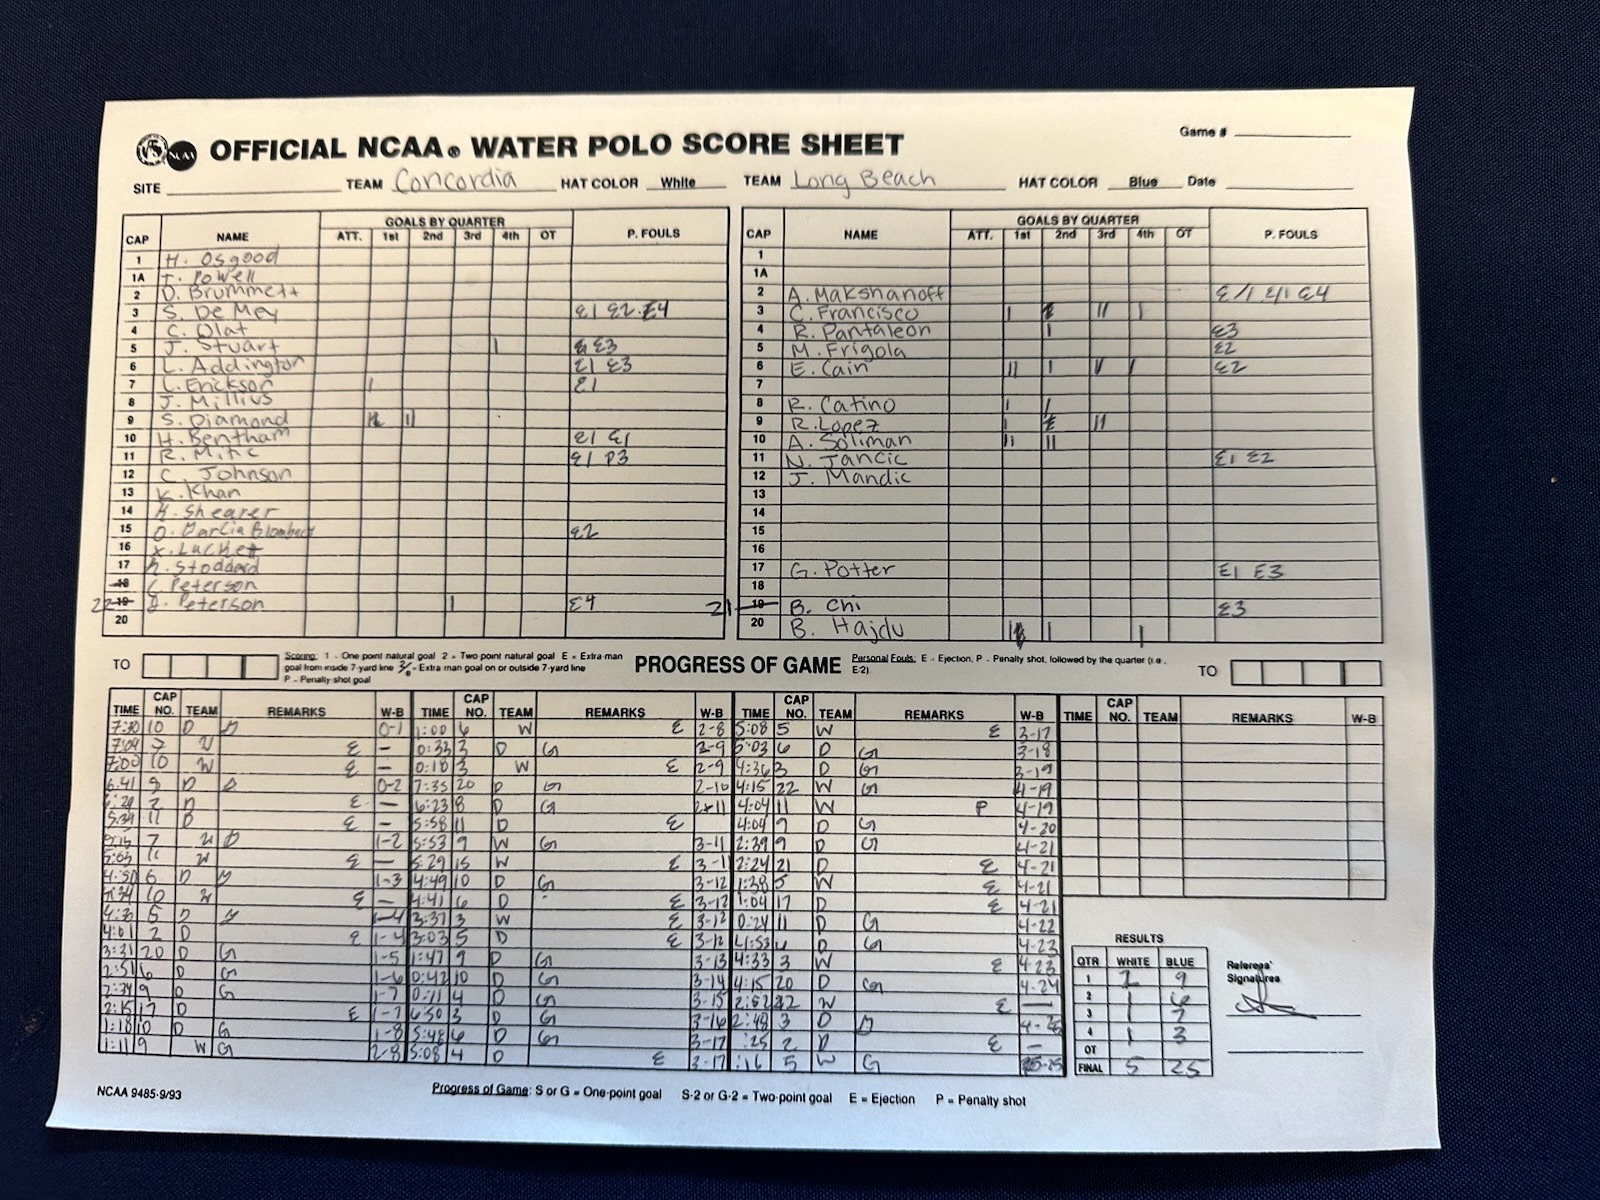 NCAA OFFICIAL NCAA® WATER POLO SCORE SHEET
Game #
SITE TEAM Concordia HAT COLOR White TEAM Long Beach HAT COLOR Blue Date
GOALS BY QUARTER GOALS BY QUARTER
CAP NAME ATT. 1st 2nd 3rd 4th OT P. FOULS CAP NAME ATT. 1st 2nd 3rd 4th OT P. FOULS
1 H. Osgood 1
1A T. Powell 1A
2 D. Brummett 2 A. Makshanoff E4
3 S. De Mey E1 E2 E4 3 C. Francisco
4 C. Olat 4 R. Pantaleon E3
5 J. Stuart E3 5 M. Frigola E2
6 L. Addington E1 E3 6 E. Cain E2
7 L. Erickson E1 7
8 J. Millius 8 R. Catino
9 S. Diamond 9 R. Lopez
10 H. Bentham E1 E1 10 A. Soliman
11 R. Mitic E1 P3 11 N. Jancic E1 E2
12 C. Johnson 12 J. Mandic
13 K. Khan 13
14 K. Shearer 14
15 O. Garcia E2 15
16 X. Luckett 16
17 K. Stoddard 17 G. Potter E1 E3
18 Peterson 18
22 19 Peterson E4 21 19 B. Chi E3
20 20 B. Hajdu
TO Scoring: 1 - One point natural goal 2 = Two point natural goal E = Extra-man
goal from inside 7-yard line - Extra man goal on or outside 7-yard line
P - Penalty-shot goal
PROGRESS OF GAME
Personal Fouls: E - Ejection, P - Penalty shot, followed by the quarter (i.e.
E/2).
TO
TIME CAP NO. TEAM REMARKS W-B TIME CAP NO. TEAM REMARKS W-B TIME CAP NO. TEAM REMARKS W-B TIME CAP NO. TEAM REMARKS W-B
7:30 10 D 0-1 1:00 6 W E 2-8 5:08 5 W E 3-17
7:09 7 W E - 0:33 3 D G 2-9 5:03 6 D G 3-18
7:00 10 W E - 0:18 3 W E 2-9 4:36 3 D G 3-19
6:41 D 0-2 7:35 20 D G 2-10 4:15 22 W G 4-19
2 D E - 6:23 8 D G 2-11 4:04 11 W P 4-19
5:39 11 D E - 5:58 11 D E 4:04 9 D G 4-20
7 W 1-2 5:53 9 W G 3-11 2:39 9 D G 4-21
5:03 W E - 5:29 15 W E 3-11 2:24 21 D E 4-21
4:50 6 D 1-3 4:49 10 D G 3-12 1:38 5 W E 4-21
10 W E - 4:41 6 D E 3-12 1:04 17 D E 4-21
D 1-4 3:37 3 W E 3-12 0:24 11 D G 4-22
4:01 2 D E 1-4 3:03 5 D E 3-12 D G 4-23
3:21 20 D G 1-5 1:47 9 D G 3-13 4:33 3 W E 4-23
2:51 6 D G 1-6 0:42 10 D G 3-14 4:15 20 D G 4-24
2:34 9 D G 1-7 0:11 4 D G 3-15 2:52 22 W E —
2:15 17 D E 1-7 6:50 3 D G 3-16 2:48 3 D
1:18 10 D G 1-8 5:48 6 D G 3-17 :25 2 D E -
1:11 9 W G 2-8 5:08 4 D E 3-17 :16 5 W G 5-25
RESULTS
QTR WHITE BLUE
1 2 9
2 1 6
3 1 7
4 1 3
OT
FINAL 5 25
Referees'
Signatures
NCAA 9485-9/93
Progress of Game: S or G = One-point goal S-2 or G-2 = Two-point goal E = Ejection P = Penalty shot